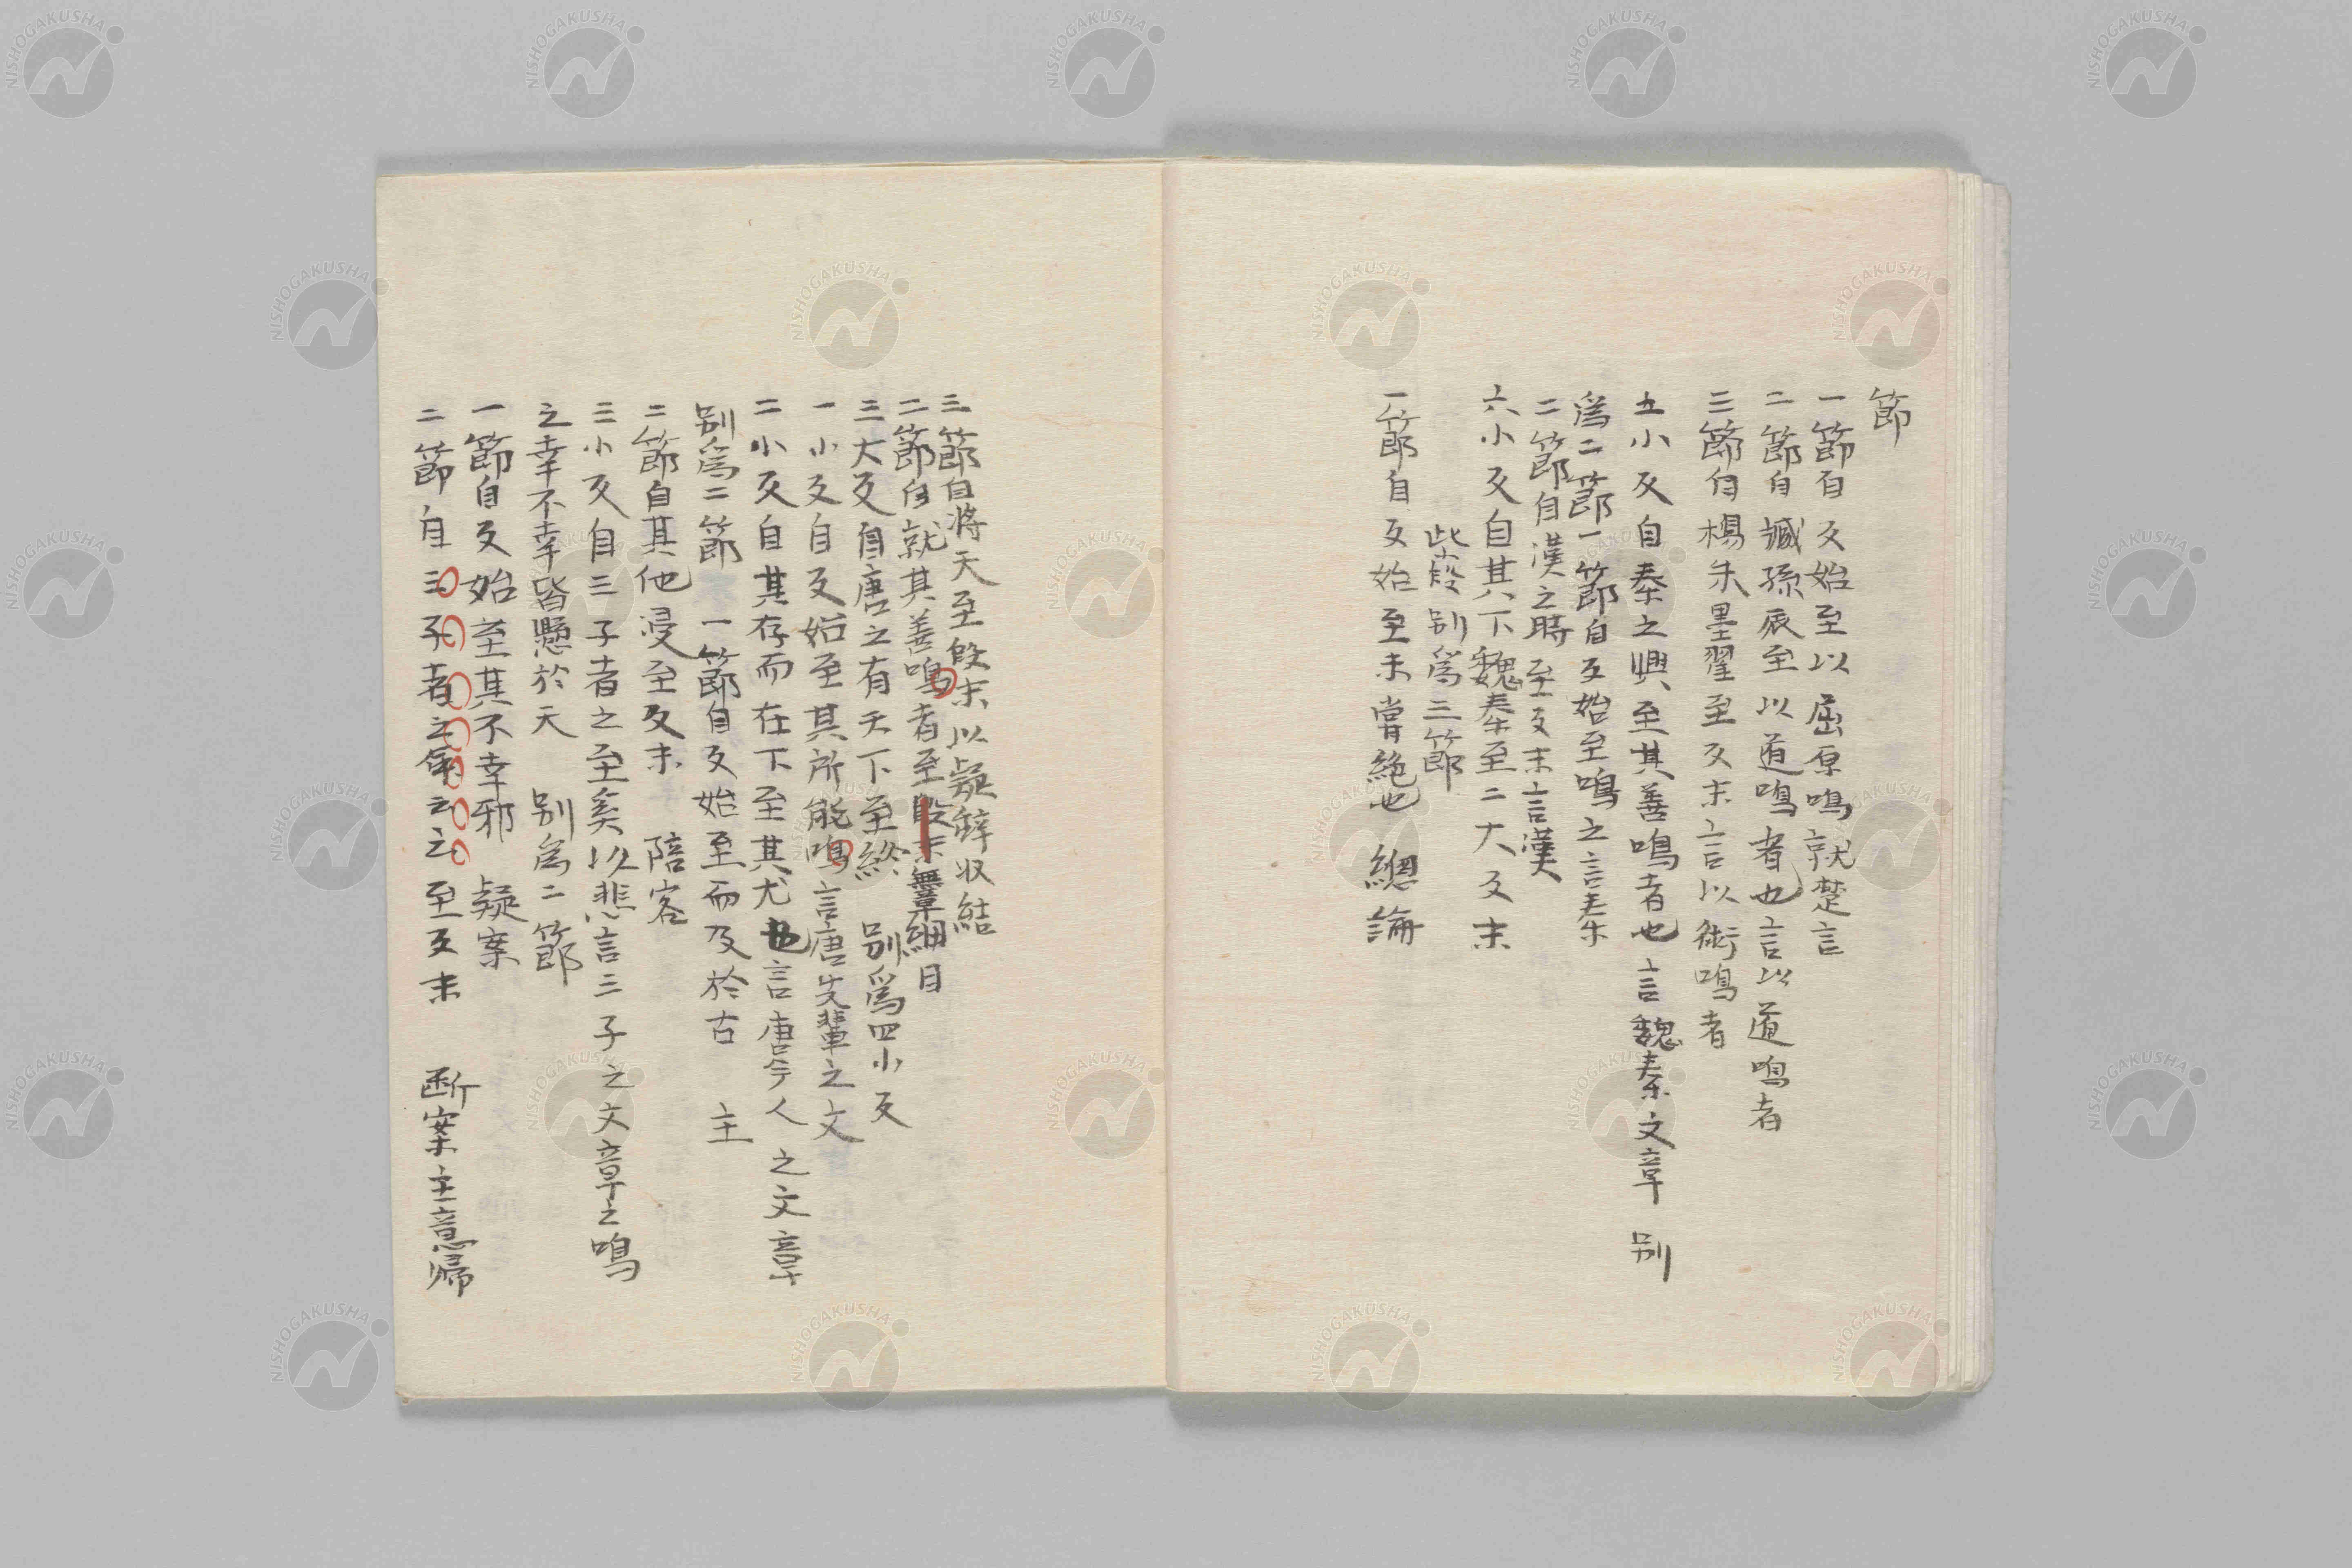 節
一節自反始至以屈原鳴就楚言
二節自臧孫辰至以道鳴者也言以道鳴者
三節自楊朱墨翟至反末言以術鳴者
五小反自秦之興至其善鳴者也言魏秦文章 別
為二節一節自反始至鳴之言秦
二節自漢之時至反末言漢
六小反自其下魏秦至二大反末
此段別為三節
一節自反始至未嘗絶也 總論
三節自將天至段末以疑辭収結
二節自就其善鳴者至段末無輩綱目
三大反自唐之有天下至終 別為四小反
一小反自反始至其所能鳴言唐先輩之文
二小反自其存而在下至其尤也言唐今人之文章
別為二節 一節自反始至而及於古 主
二節自其他浸至反末 陪客
三小反自三子者之至矣以悲言三子之文章之鳴
之幸不幸皆懸於天 別為二節
一節自反始至其不幸邪 疑案
二節自三子者之命云云至反末 断案主意帰